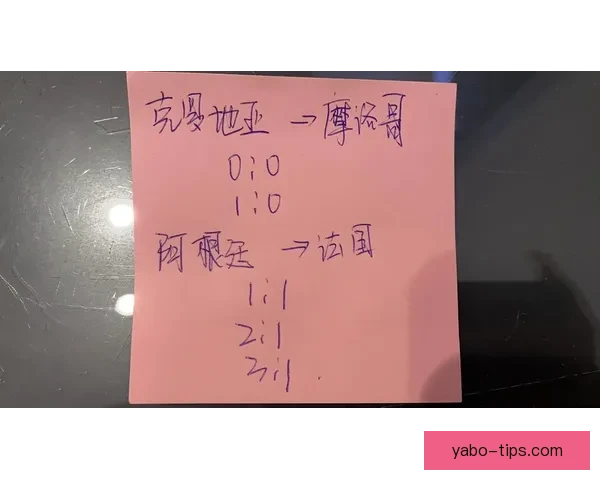 克罗地亚 → 摩洛哥
0:0
1:0
阿根廷 → 法国
1:1
2:1
3:1.
yabo-tips.com